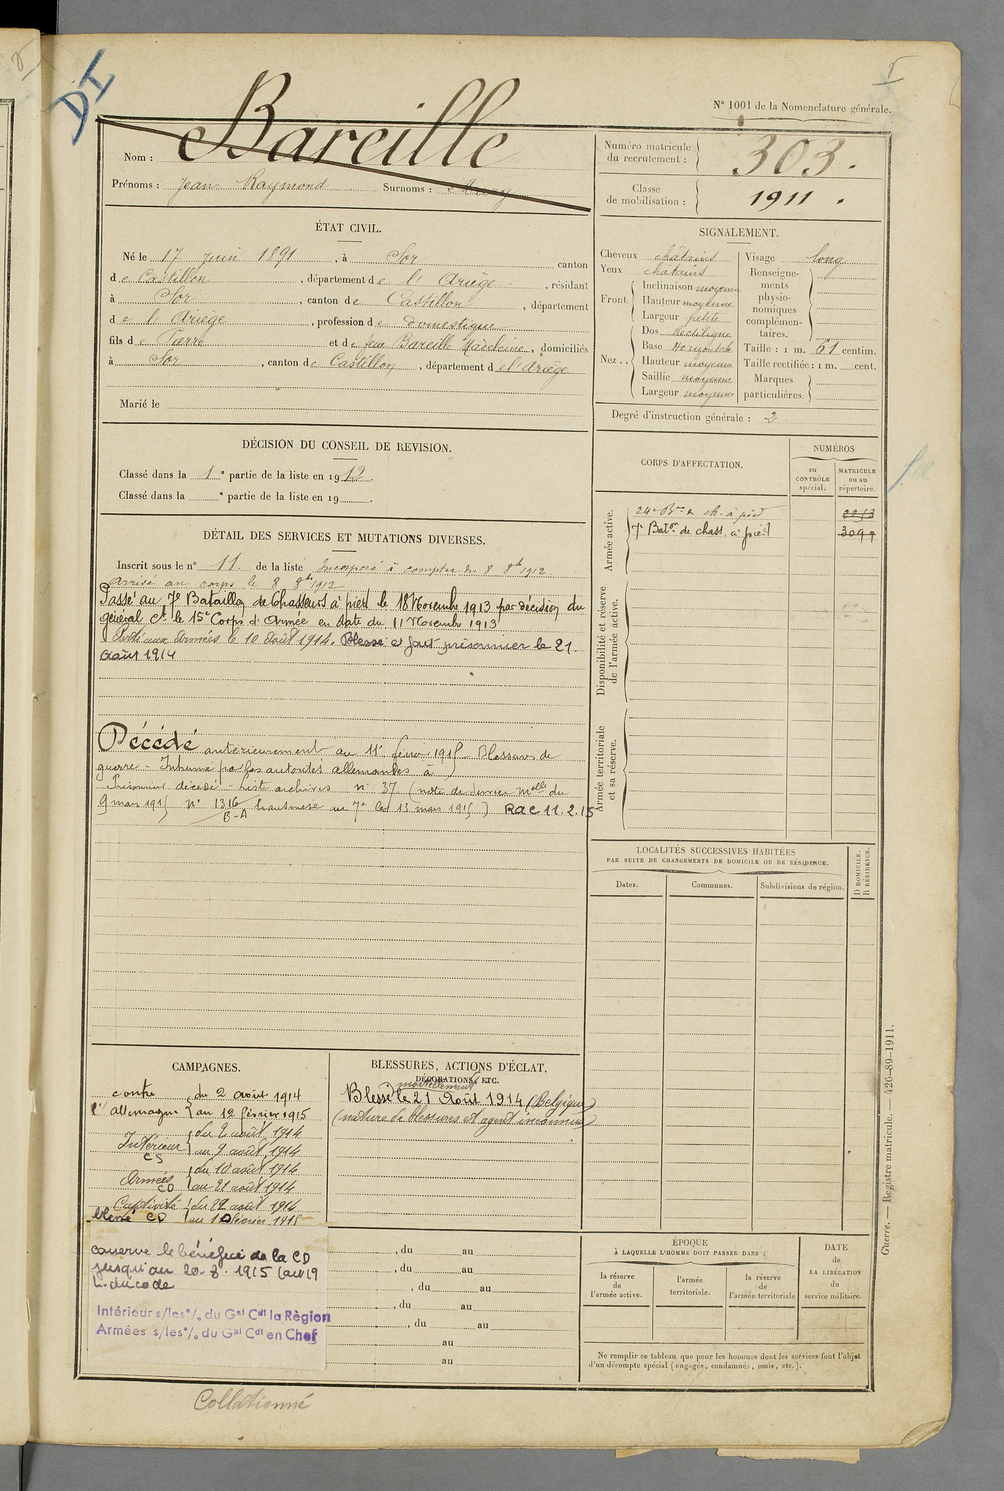 DI
N° 1001 de la Nomenclature générale.
Nom : Bareille
Prénoms : Jean Raymond Surnoms :
Numéro matricule du recrutement : 303.
Classe de mobilisation : 1911.
ÉTAT CIVIL.
Né le 17 juin 1891, à Sor canton
de Castillon, département de l'Ariège, résidant
à Sor, canton de Castillon, département
de l'Ariège, profession de domestique
fils de Pierre et de feu Bareille Madeleine, domiciliés
à Sor, canton de Castillon, département de l'Ariège
Marié le
SIGNALEMENT.
Cheveux châtains
Yeux châtains
Front. Inclinaison moyenne
Hauteur moyenne
Largeur petite
Nez. Dos Rectiligne
Base Horizontale
Hauteur moyenne
Saillie moyenne
Largeur moyenne
Visage long
Renseignements physionomiques complémentaires.
Taille : 1 m. 61 centim.
Taille rectifiée : 1 m. cent.
Marques particulières.
Degré d'instruction générale : 2
DÉCISION DU CONSEIL DE REVISION.
Classé dans la 1e partie de la liste en 1912.
Classé dans la e partie de la liste en 19 .
CORPS D'AFFECTATION.
NUMÉROS
au CONTRÔLE spécial.
MATRICULE ou au répertoire.
Armée active.
24e Bon de ch. à pied
7e Baton de chass. à pied 3097
Disponibilité et réserve de l'armée active.
Armée territoriale et sa réserve.
DÉTAIL DES SERVICES ET MUTATIONS DIVERSES.
Inscrit sous le n° 11. de la liste Incorporé à compter du 8 8bre 1912
arrivé au corps le 8 8bre 1912
Passé au 7e Bataillon de Chasseurs à pied le 18 Novembre 1913 par décision du
général Ct le 15e Corps d'Armée en date du 11 Novembre 1913
Parti aux Armées le 10 Août 1914. Blessé et fait prisonnier le 21
Août 1914
Décédé antérieurement au 11 février 1915 Blessures de
guerre - Inhumé par les autorités allemandes à
Prisonnier décédé - liste archives n° 37 (note de service Melle du
9 mars 1915 N° 1316 B-A transmise au 7e le 13 mars 1915) Rac 11.2.15
LOCALITÉS SUCCESSIVES HABITÉES
PAR SUITE DE CHANGEMENTS DE DOMICILE OU DE RÉSIDENCE.
Dates.
Communes.
Subdivisions de région.
D DOMICILE, R RÉSIDENCE.
CAMPAGNES.
contre l'allemagne du 2 août 1914
au 12 février 1915
Intérieur CS du 2 août 1914
au 9 août 1914
Armées CD du 10 août 1914
au 21 août 1914
Captivité blessé CD du 22 août 1914
au février 1915
conserve le bénéfice de la CD
jusqu'au 20-8-1915 (art 19
L. du code
Intérieur s/les °/. du Gal Cdt la Règion
Armées s/les °/. du Gal Cdt en Chef
BLESSURES, ACTIONS D'ÉCLAT,
DÉCORATIONS, ETC.
mortellement
Blessé le 21 Août 1914 (Belgique)
(nature de blessures et agent inconnus)
, du au
, du au
, du au
, du au
, du au
au
au
ÉPOQUE
À LAQUELLE L'HOMME DOIT PASSER DANS :
la réserve de l'armée active.
l'armée territoriale.
la réserve de l'armée territoriale
DATE de LA LIBÉRATION du service militaire.
Ne remplir ce tableau que pour les hommes dont les services font l'objet
d'un décompte spécial (engagés, condamnés, omis, etc.).
Guerre. — Registre matricule. — 426-89-1911.
Collationné